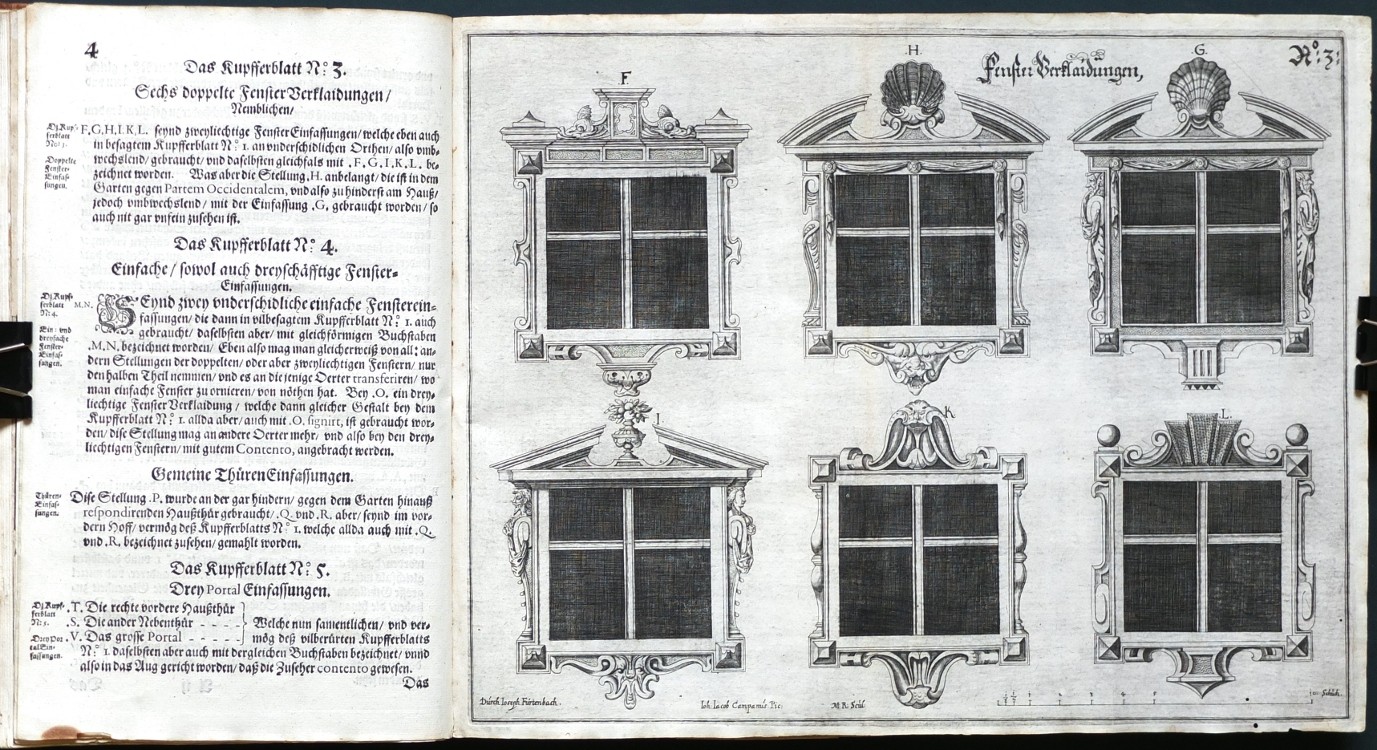 4
Das Kupfferblatt N.° 3.
Sechs doppelte FensterVerklaidungen/
Nemblichen/
Dz Kupf-
ferblatt
N.° 3.
Doppelte
Fenster-
Einfas-
sungen.
F, G, H, I. K. L. seynd zweyliechtige FensterEinfassungen/ welche eben auch
in besagtem Kupfferblatt N.° 1. an vnderschidlichen Orthen/ also vmb-
wechslend/ gebraucht/ vnd daselbsten gleichfals mit .F. G. I. K. L. be-
zeichnet worden. Was aber die Stellung .H. anbelangt/ die ist in dem
Garten gegen Partem Occidentalem, vnd also zu hinderst am Hauß/
jedoch vmbwechslend/ mit der Einfassung .G. gebraucht worden/ so
auch nit gar vnfein zusehen ist.
Das Kupfferblatt N.° 4.
Einfache/ sowol auch dreyschäfftige Fenster-
Einfassungen.
Dz Kupf-
ferblatt
N.° 4.
Ein- vnd
dreyfache
Fenster-
Einfas-
sungen.
M.N. SEynd zwey vnderschidliche einfache Fensterein-
fassungen/ die dann in vilbesagtem Kupfferblatt N.° 1. auch
gebraucht/ daselbsten aber/ mit gleichförmigen Buchstaben
.M. N. bezeichnet worden/ Eben also mag man gleicherweiß von all: an-
dern Stellungen der doppelten/ oder aber zweyliechtigen Fenstern/ nur
den halben Theil nemmen/ vnd es an die jenige Oerter transferiren/ wo
man einfache Fenster zu ornieren/ von nöthen hat. Bey .O. ein drey-
liechtige FensterVerklaidung/ welche dann gleicher Gestalt bey dem
Kupfferblatt N.° 1. allda aber/ auch mit .O. signirt, ist gebraucht wor-
den/ dise Stellung mag an andere Oerter mehr/ vnd also bey den drey-
liechtigen Fenstern/ mit gutem Contento, angebracht werden.
Gemeine ThürenEinfassungen.
Thüren-
Einfas-
sungen.
Dise Stellung .P. wurde an der gar hindern/ gegen dem Garten hinauß
respondirenden Haußthür gebraucht/ .Q. vnd .R. aber/ seynd im vor-
dern Hoff/ vermög deß Kupfferblatts N.° 1. welche allda auch mit .Q.
vnd .R. bezeichnet zusehen/ gemahlt worden.
Das Kupfferblatt N.° 5.
Drey Portal Einfassungen.
Dz Kupf-
ferblatt
N.° 5.
Drey Por-
tal Ein-
fassungen.
.T. Die rechte vordere Haußthür
.S. Die ander Nebenthür - - - -
.V. Das grosse Portal - - - - -
Welche nun samentlichen/ vnd ver-
mög deß vilberürten Kupfferblatts
N.° 1. daselbsten aber auch mit dergleichen Buchstaben bezeichnet/ vnnd
also in das Aug gericht worden/ daß die Zuseher contento gewesen.
Das
Fenster Verklaidungen,
N.° 3:
F.
H.
G.
I.
K.
L.
Durch Ioseph Fürtenbach.
Ioh: Iacob Campanus Pic:
M. R. Scul:
Schůch.